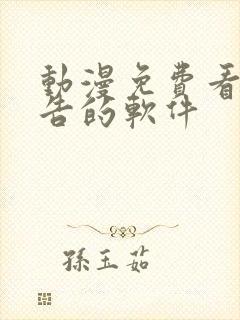 動漫免費看
告的軟件
孫玉茹